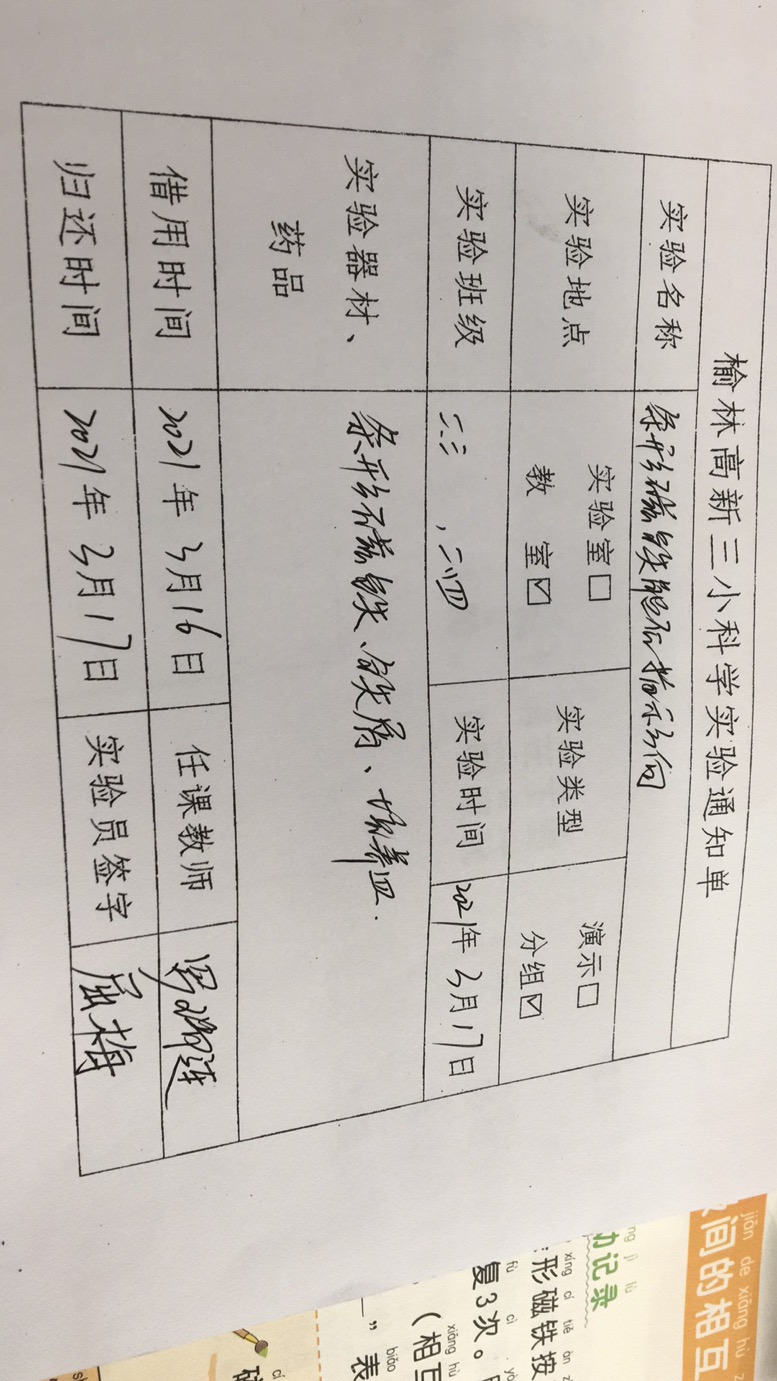 榆林高新三小科学实验通知单
实验名称 条形磁铁能否指示方向
实验地点 实验室□ 教 室☑ 实验类型 演示□ 分组☑
实验班级 二三,二四 实验时间 2021年3月17日
实验器材、药品 条形磁铁、铁屑、培养皿.
借用时间 2021年3月16日 任课教师
归还时间 2021年3月17日 实验员签字 屈梅
间的相互
jiān de xiāng hù
记录
jì lù
形磁铁按
xíng cí tiě àn
复3次。
fù cì
(相互
xiāng hù
”表
biǎo